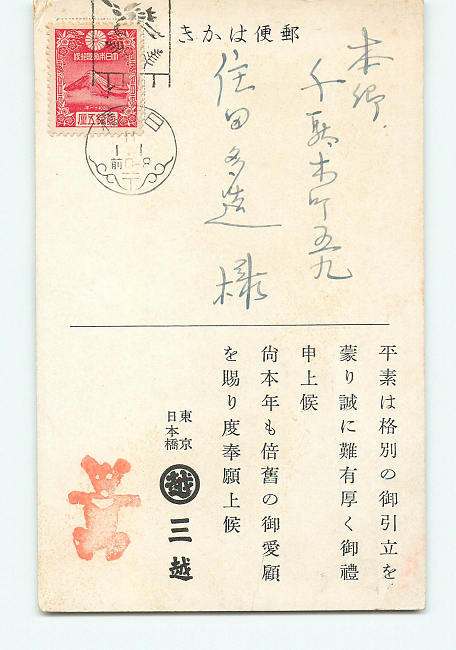 郵便はかき
本郷
千駄木町五九
住田多造様
平素は格別の御引立を
蒙り誠に難有厚く御禮
申上候
尙本年も倍舊の御愛顧
を賜り度奉願上候
東京
日本橋
越
三越